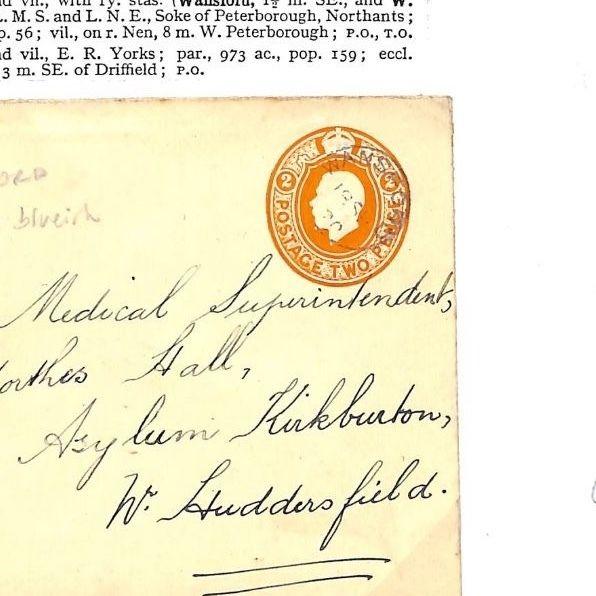 nd vil., with ry. stas. (Wansford, 1½ m. SE., and W.
L. M. S. and L. N. E., Soke of Peterborough, Northants;
p. 56; vil., on r. Nen, 8 m. W. Peterborough; P.O., T.O.
nd vil., E. R. Yorks; par., 973 ac., pop. 159; eccl.
3 m. SE. of Driffield; P.O.
ORD
blueish
2
WANSFORD
19 S
POSTAGE TWO PENCE
Medical Superintendent,
orthes Hall,
Asylum Kirkburton,
Nr. Huddersfield.